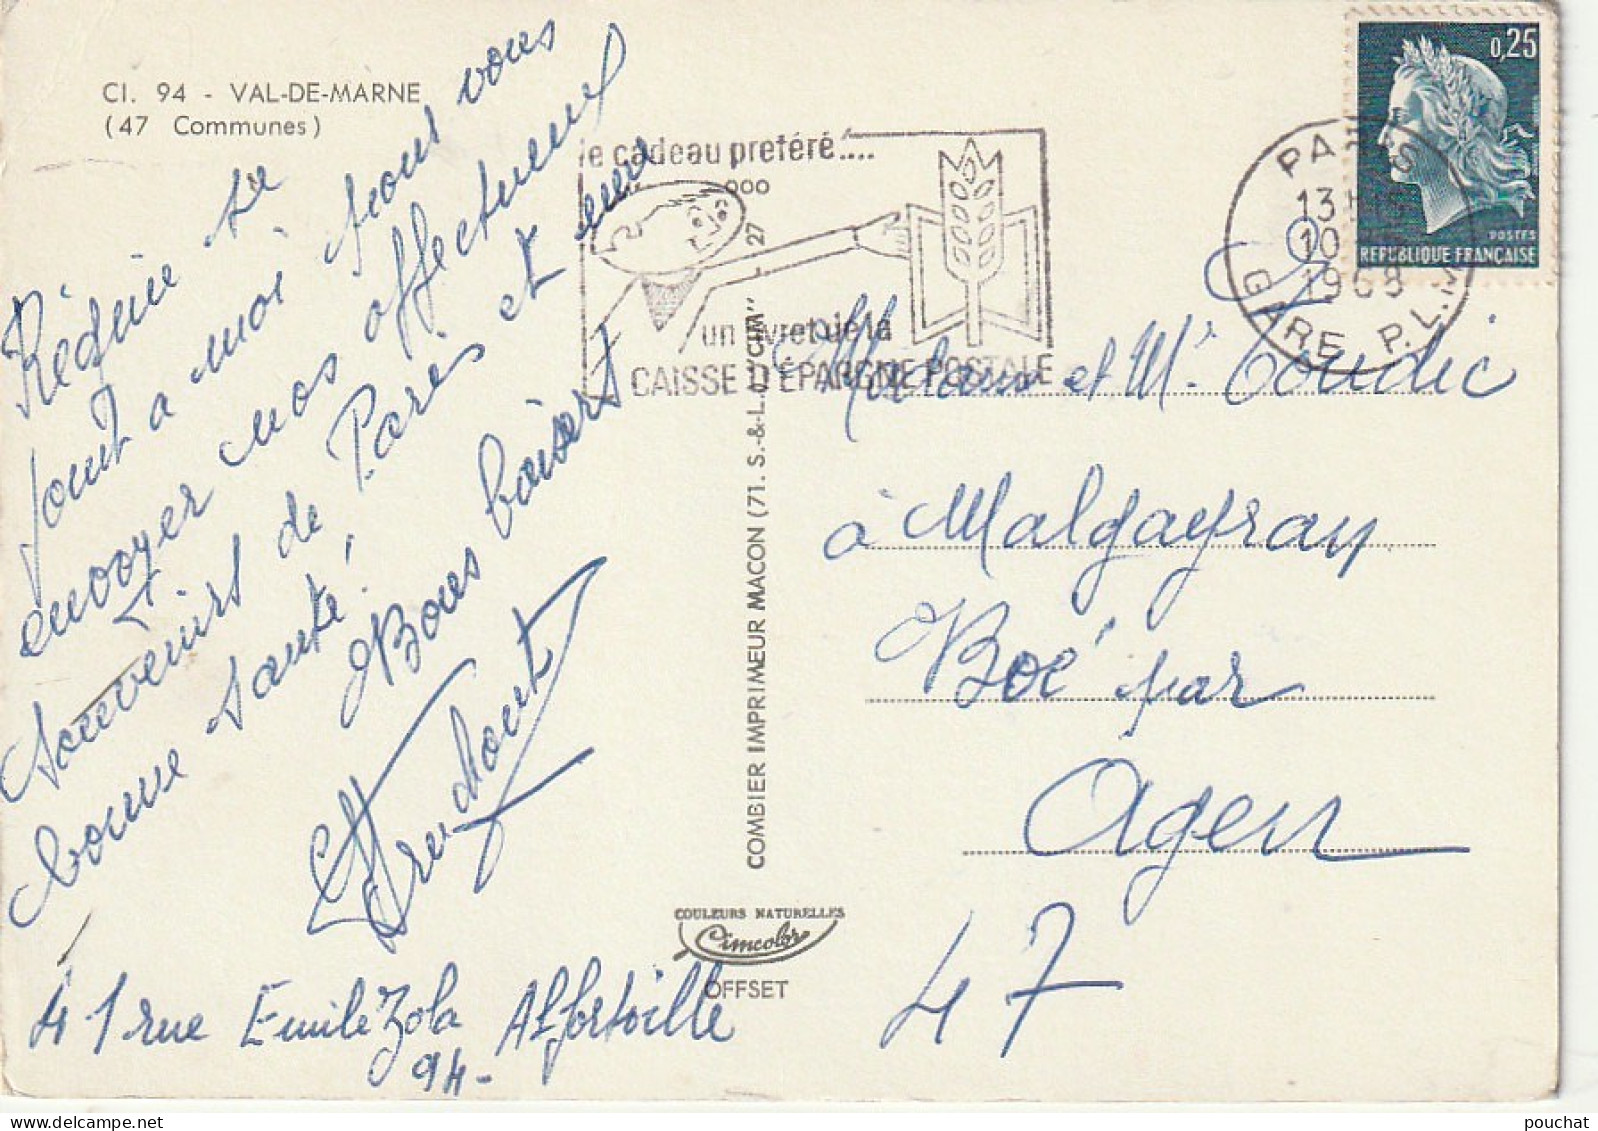 CI. 94 - VAL-DE-MARNE
(47 Communes)
Régine se
joint à moi pour vous
envoyer nos affectueux
souvenirs de Paris et une
bonne santé !
Bons baisers
41 rue Emile Zola Alfortville
94-
le cadeau préféré....
27
un livret de la
CAISSE D'ÉPARGNE POSTALE
COMBIER IMPRIMEUR MACON (71. S.-&-L.) "CIM"
COULEURS NATURELLES
Cimcolor
OFFSET
0,25
POSTES
REPUBLIQUE FRANÇAISE
PARIS
13 H
10
1968
GARE P.L.M
Madame et Mr Coudic
à Malgayray
Boé par
Agen
47
pouchat